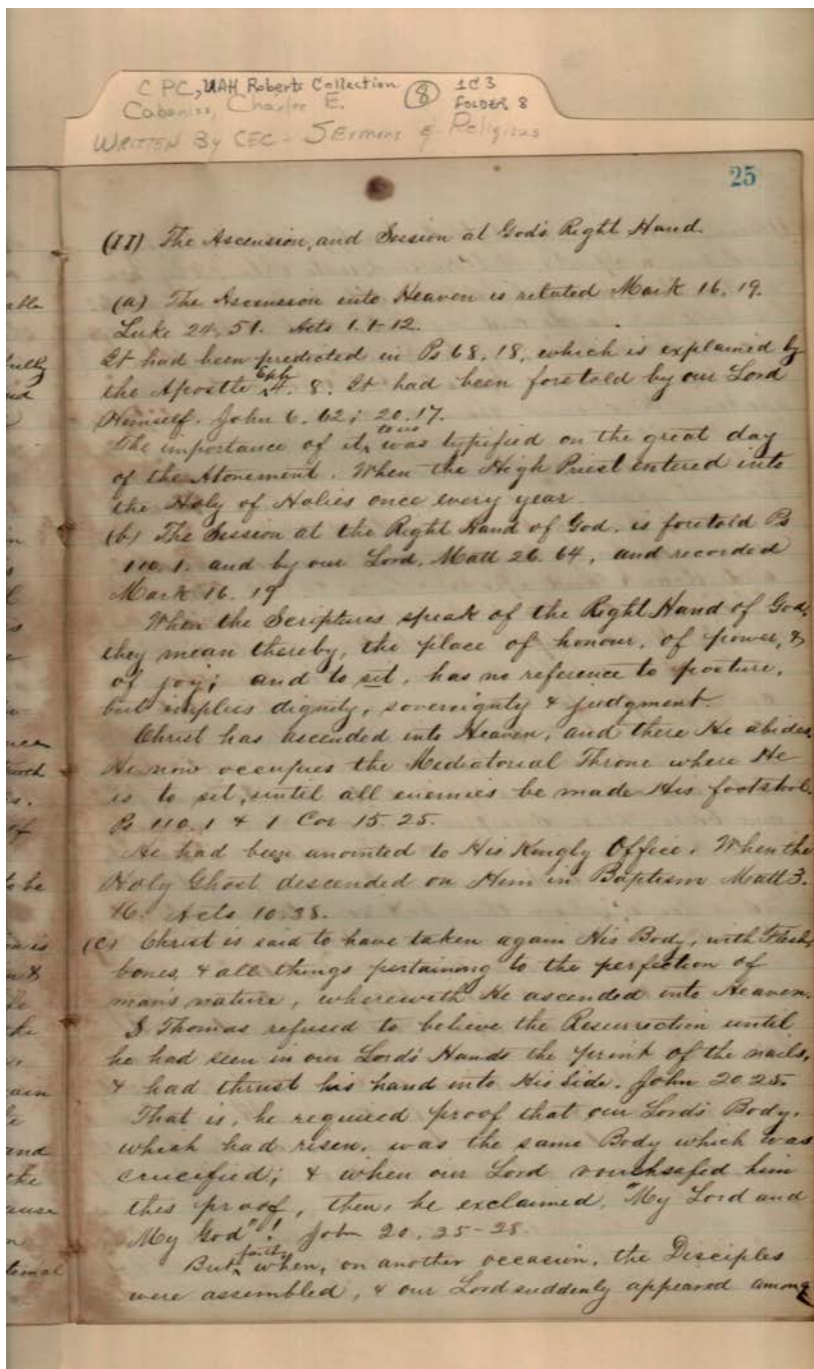 C PC, UAH Roberts Collection
Cabaniss, Charles E.
(8) 1C3
FOLDER 8
WRITTEN BY CEC - SERMONS & Religious
25
(II) The Ascension, and Session at God's Right Hand.
(a) The Ascension into Heaven is related Mark 16. 19.
Luke 24, 51. Acts 1. 1-12.
It had been predicted in Ps 68. 18, which is explained by
the Apostle Eph 4. 8. It had been foretold by our Lord
Himself. John 6. 62; 20. 17.
The importance of it, to us was typified on the great day
of the Atonement. When the High Priest entered into
the Holy of Holies once every year.
(b) The Session at the Right Hand of God. is foretold Ps
110. 1. and by our Lord. Matt 26. 64, and recorded
Mark 16. 19
When the Scriptures speak of the Right Hand of God,
they mean thereby, the place of honour, of power, &
of joy; and to sit, has no reference to posture,
but implies dignity, sovereignty & judgment.
Christ has ascended into Heaven, and there He abides.
He now occupies the Mediatorial Throne where He
is to sit, until all enemies be made His footstool.
Ps 110. 1 & 1 Cor 15. 25.
He had been anointed to His Kingly Office. When the
Holy Ghost descended on Him in Baptism Matt 3.
16. Acts 10. 38.
(c) Christ is said to have taken again His Body, with Flesh,
bones, & all things pertaining to the perfection of
man's nature, wherewith He ascended into Heaven.
S Thomas refused to believe the Resurrection until
he had seen in our Lord's Hands the print of the nails,
& had thrust his hand into His Side. John 20 25.
That is, he required proof that our Lord's Body,
which had risen, was the same Body which was
crucified; & when our Lord vouchsafed him
this proof, then, he exclaimed, "My Lord and
My God"! John 20. 25-28.
But, when, on another occasion, the Disciples
were assembled, & our Lord suddenly appeared among